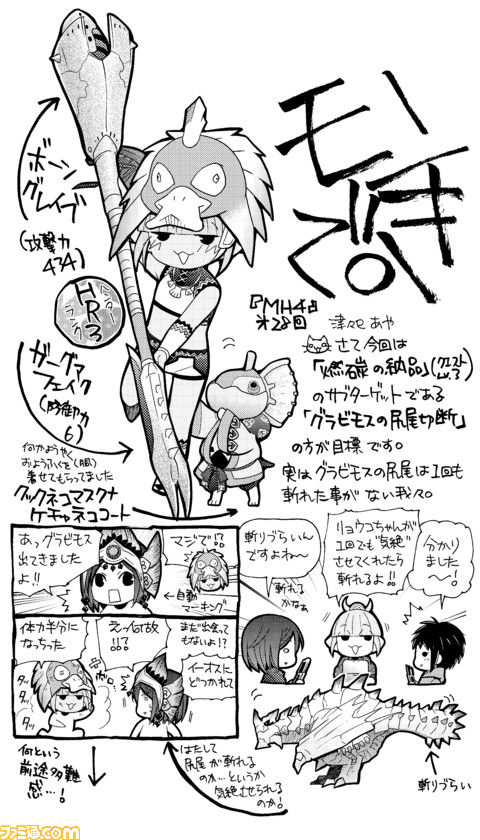 モンでき。
ボーン
グレイブ
(攻撃力
434)
ハンター
ランク
HR3
ガーグァ
フェイク
(防御力
6)
何かようやく
おようふくを(服)
着せてもらってました
クックネコマスク+
ケチャネココート
『MH4』
オ28回
津々巳あや
さて今回は
「燃石炭の納品」(クエストLv.3)
のサブターゲットである
「グラビモスの尻尾切断」
の方が目標です。
実はグラビモスの尻尾は1回も
斬れた事がない我々。
斬りづらいん
ですよね〜
斬れる
かなぁ
リョウコちゃんが
1回でも“気絶”
させてくれたら
斬れるよ!!
分かり
ました
〜!
斬りづらい
マジで!?
←自動
マーキング
あっグラビモス
出てきました
よ!!
まだ出会って
もないよ!?
イーオスに
どつかれて
えっ何故
!!?
体力半分に
なっちった
ダッ
ダッ
ダッ
はたして
尻尾が斬れる
のか…というか
気絶させられる
のか!
何という
前途多難
感…!
ファミ通.com